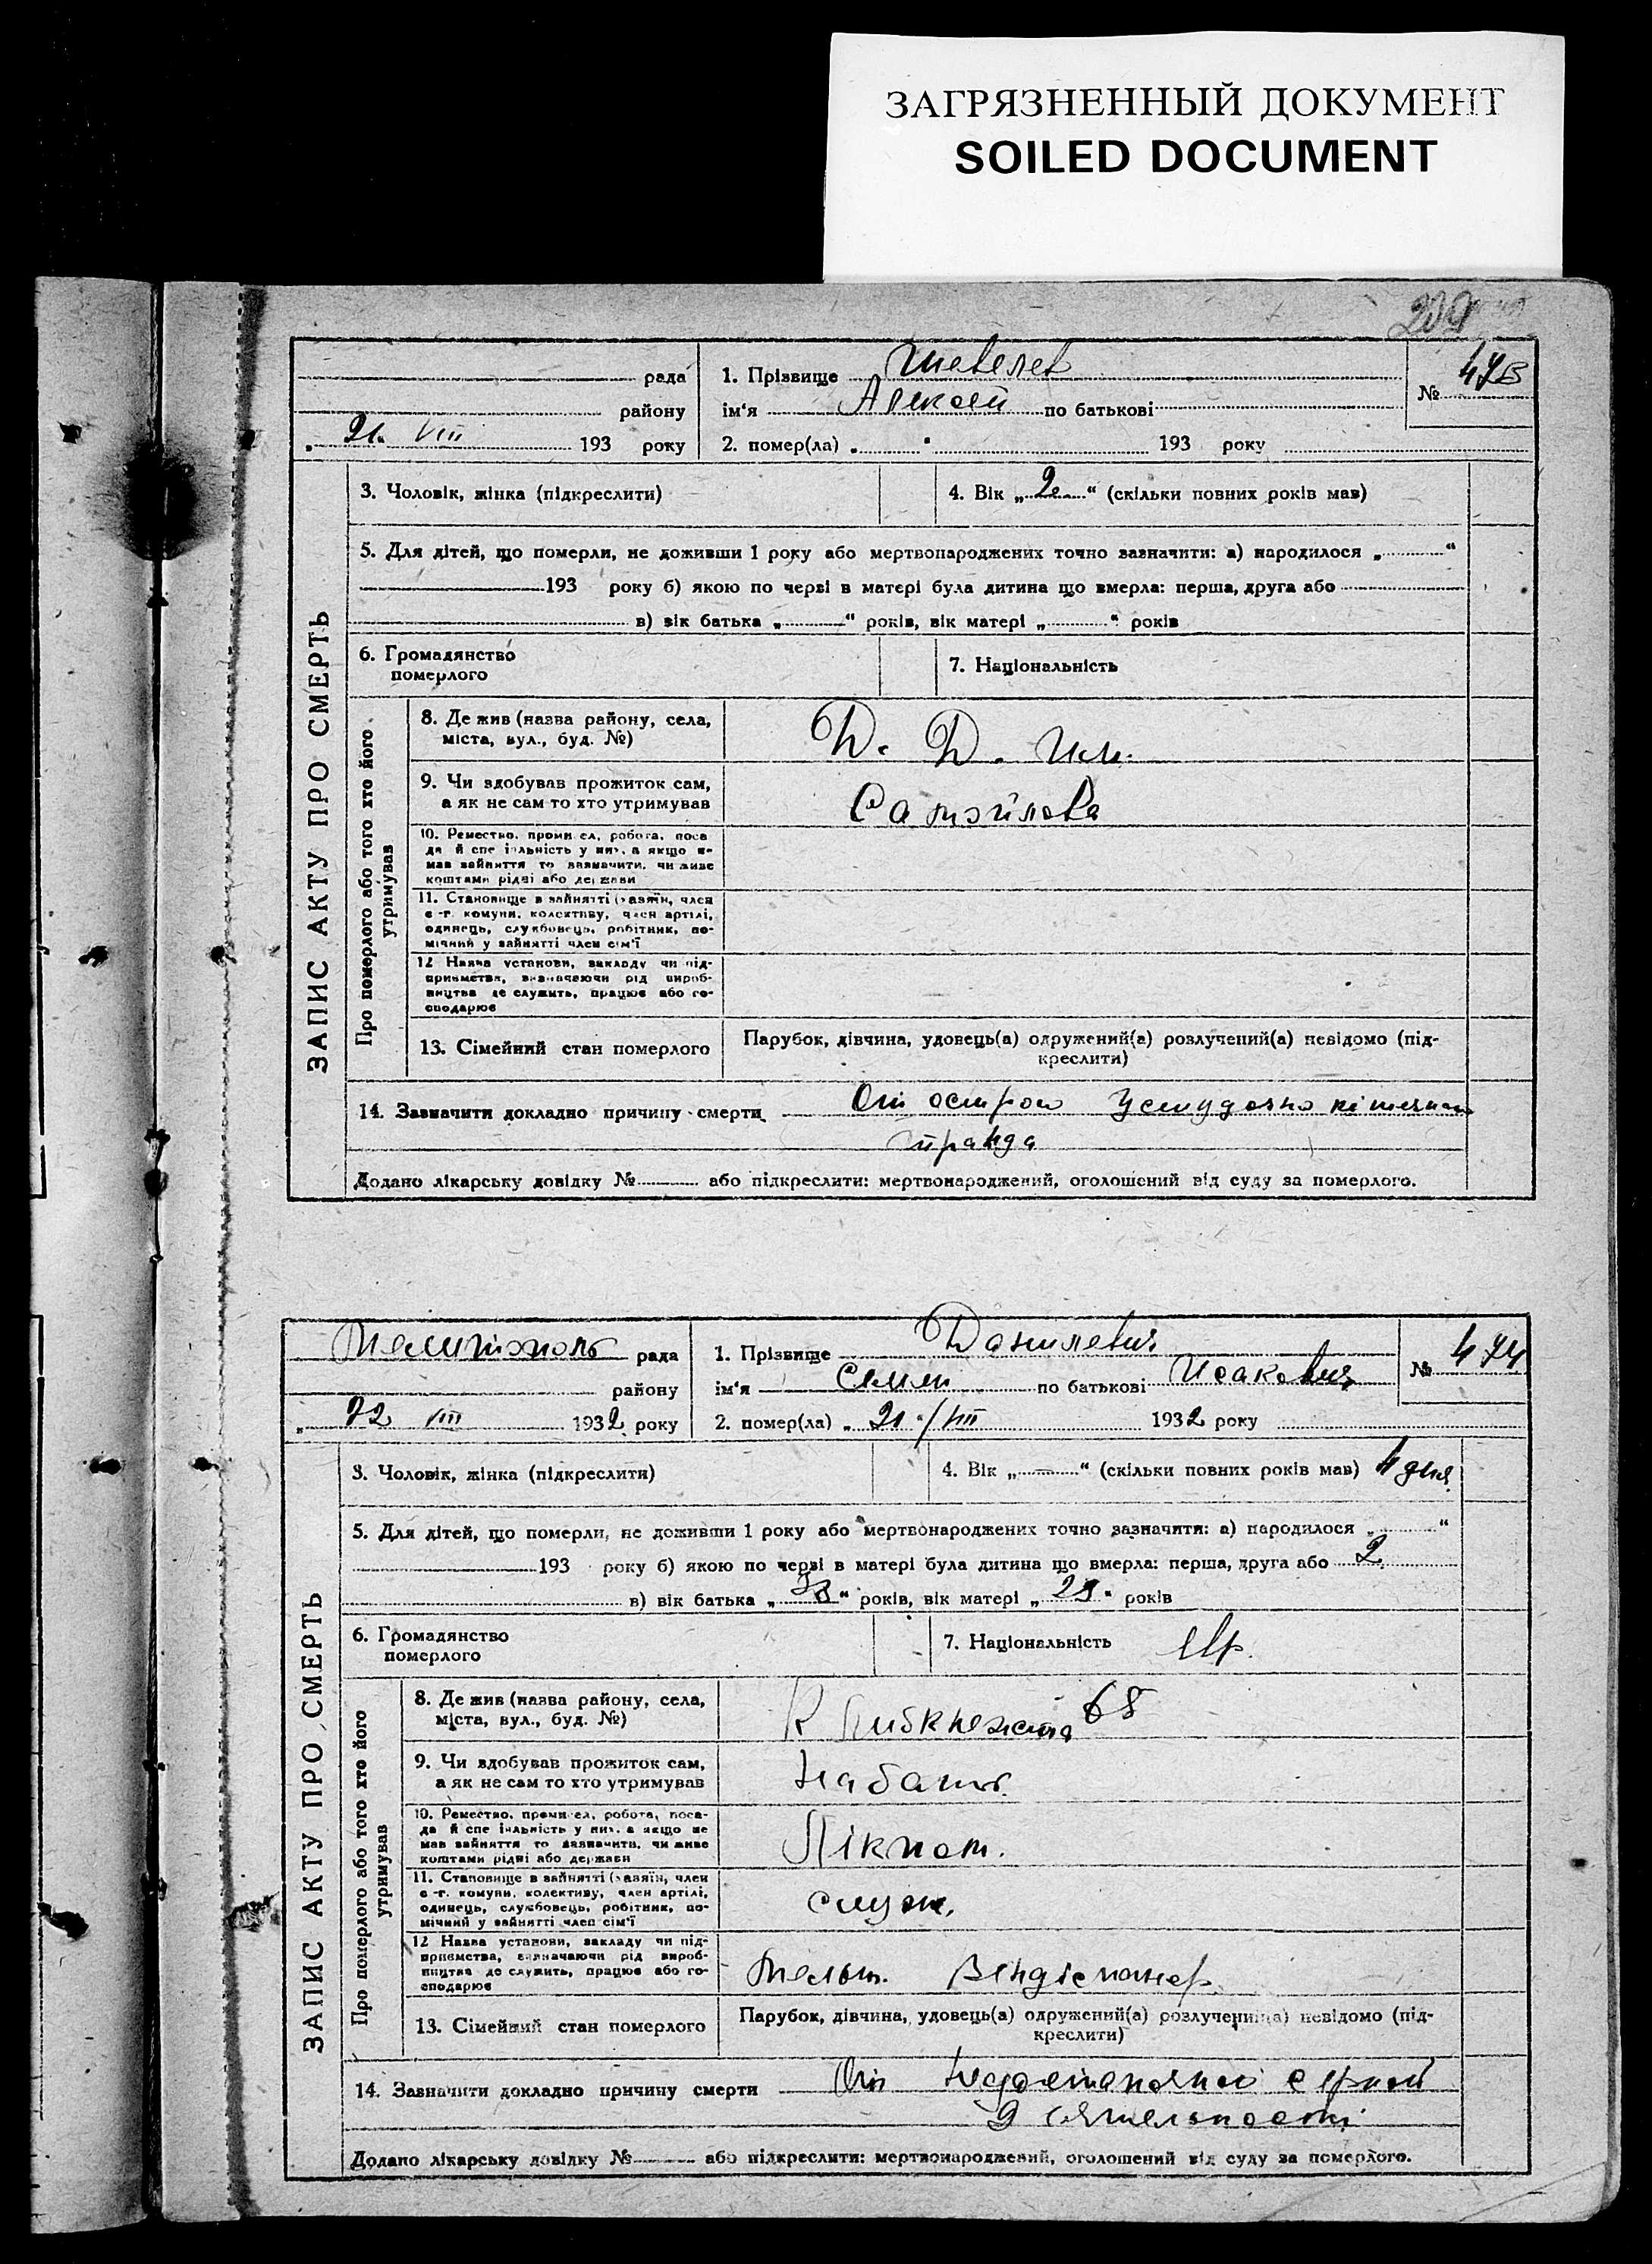 ЗАГРЯЗНЕННЫЙ ДОКУМЕНТ
SOILED DOCUMENT
209
ЗАПИС АКТУ ПРО СМЕРТЬ
рада
району
21 VIII 193 року
1. Прізвище Шевелев
ім'я Алексей по батькові
2. помер(ла) „ “ 193 року
№ 473
3. Чоловік, жінка (підкреслити)
4. Вік „2“ (скільки повних років мав)
5. Для дітей, що померли, не доживши 1 року або мертвонароджених точно зазначити: а) народилося „ “
193 року б) якою по черві в матері була дитина що вмерла: перша, друга або
в) вік батька „ “ років, вік матері „ “ років
6. Громадянство
померлого
7. Національність
Про померлого або того хто його
утримував
8. Де жив (назва району, села,
міста, вул., буд. №)
Д. Д. им.
9. Чи здобував прожиток сам,
а як не сам то хто утримував
Самойлова
10. Ремество, промисел, робота, поса-
да й спеціальність у них, а якщо не
мав зайняття то зазначити, чи живе
коштами рідні або держави
11. Становище в зайнятті (хазяїн, член
с.-г. комуни, колективу, член артілі,
одинець, службовець, робітник, по-
мічний у зайнятті член сім'ї
12 Назва установи, закладу чи під-
приємства, визначаючи рід вироб-
ництва де служить, працює або го-
сподарює
13. Сімейний стан померлого
Парубок, дівчина, удовець(а) одружений(а) розлучений(а) невідомо (під-
креслити)
14. Зазначити докладно причину смерти От острого
Додано лікарську довідку № або підкреслити: мертвонароджений, оголошений від суду за померлого.
ЗАПИС АКТУ ПРО СМЕРТЬ
Мелитополь рада
району
„22 VIII 1932 року
1. Прізвище Данилевич
ім'я Семен по батькові Исакович
2. помер(ла) „21“/VIII 1932 року
№ 474
3. Чоловік, жінка (підкреслити)
4. Вік „—“ (скільки повних років мав) 4 дня
5. Для дітей, що померли, не доживши 1 року або мертвонароджених точно зазначити: а) народилося „ “
193 року б) якою по черві в матері була дитина що вмерла: перша, друга або 2
в) вік батька „ “ років, вік матері „29“ років
6. Громадянство
померлого
7. Національність Євр.
Про померлого або того хто його
утримував
8. Де жив (назва району, села,
міста, вул., буд. №)
К Либкнехта 68
9. Чи здобував прожиток сам,
а як не сам то хто утримував
10. Ремество, промисел, робота, поса-
да й спеціальність у них, а якщо не
мав зайняття то зазначити, чи живе
коштами рідні або держави
Лікпом.
11. Становище в зайнятті (хазяїн, член
с.-г. комуни, колективу, член артілі,
одинець, службовець, робітник, по-
мічний у зайнятті член сім'ї
служ.
12 Назва установи, закладу чи під-
приємства, визначаючи рід вироб-
ництва де служить, працює або го-
сподарює
Мелит. Вендіспансер.
13. Сімейний стан померлого
Парубок, дівчина, удовець(а) одружений(а) розлучений(а) невідомо (під-
креслити)
14. Зазначити докладно причину смерти От недостаточной серной
деятельности
Додано лікарську довідку № або підкреслити: мертвонароджений, оголошений від суду за померлого.